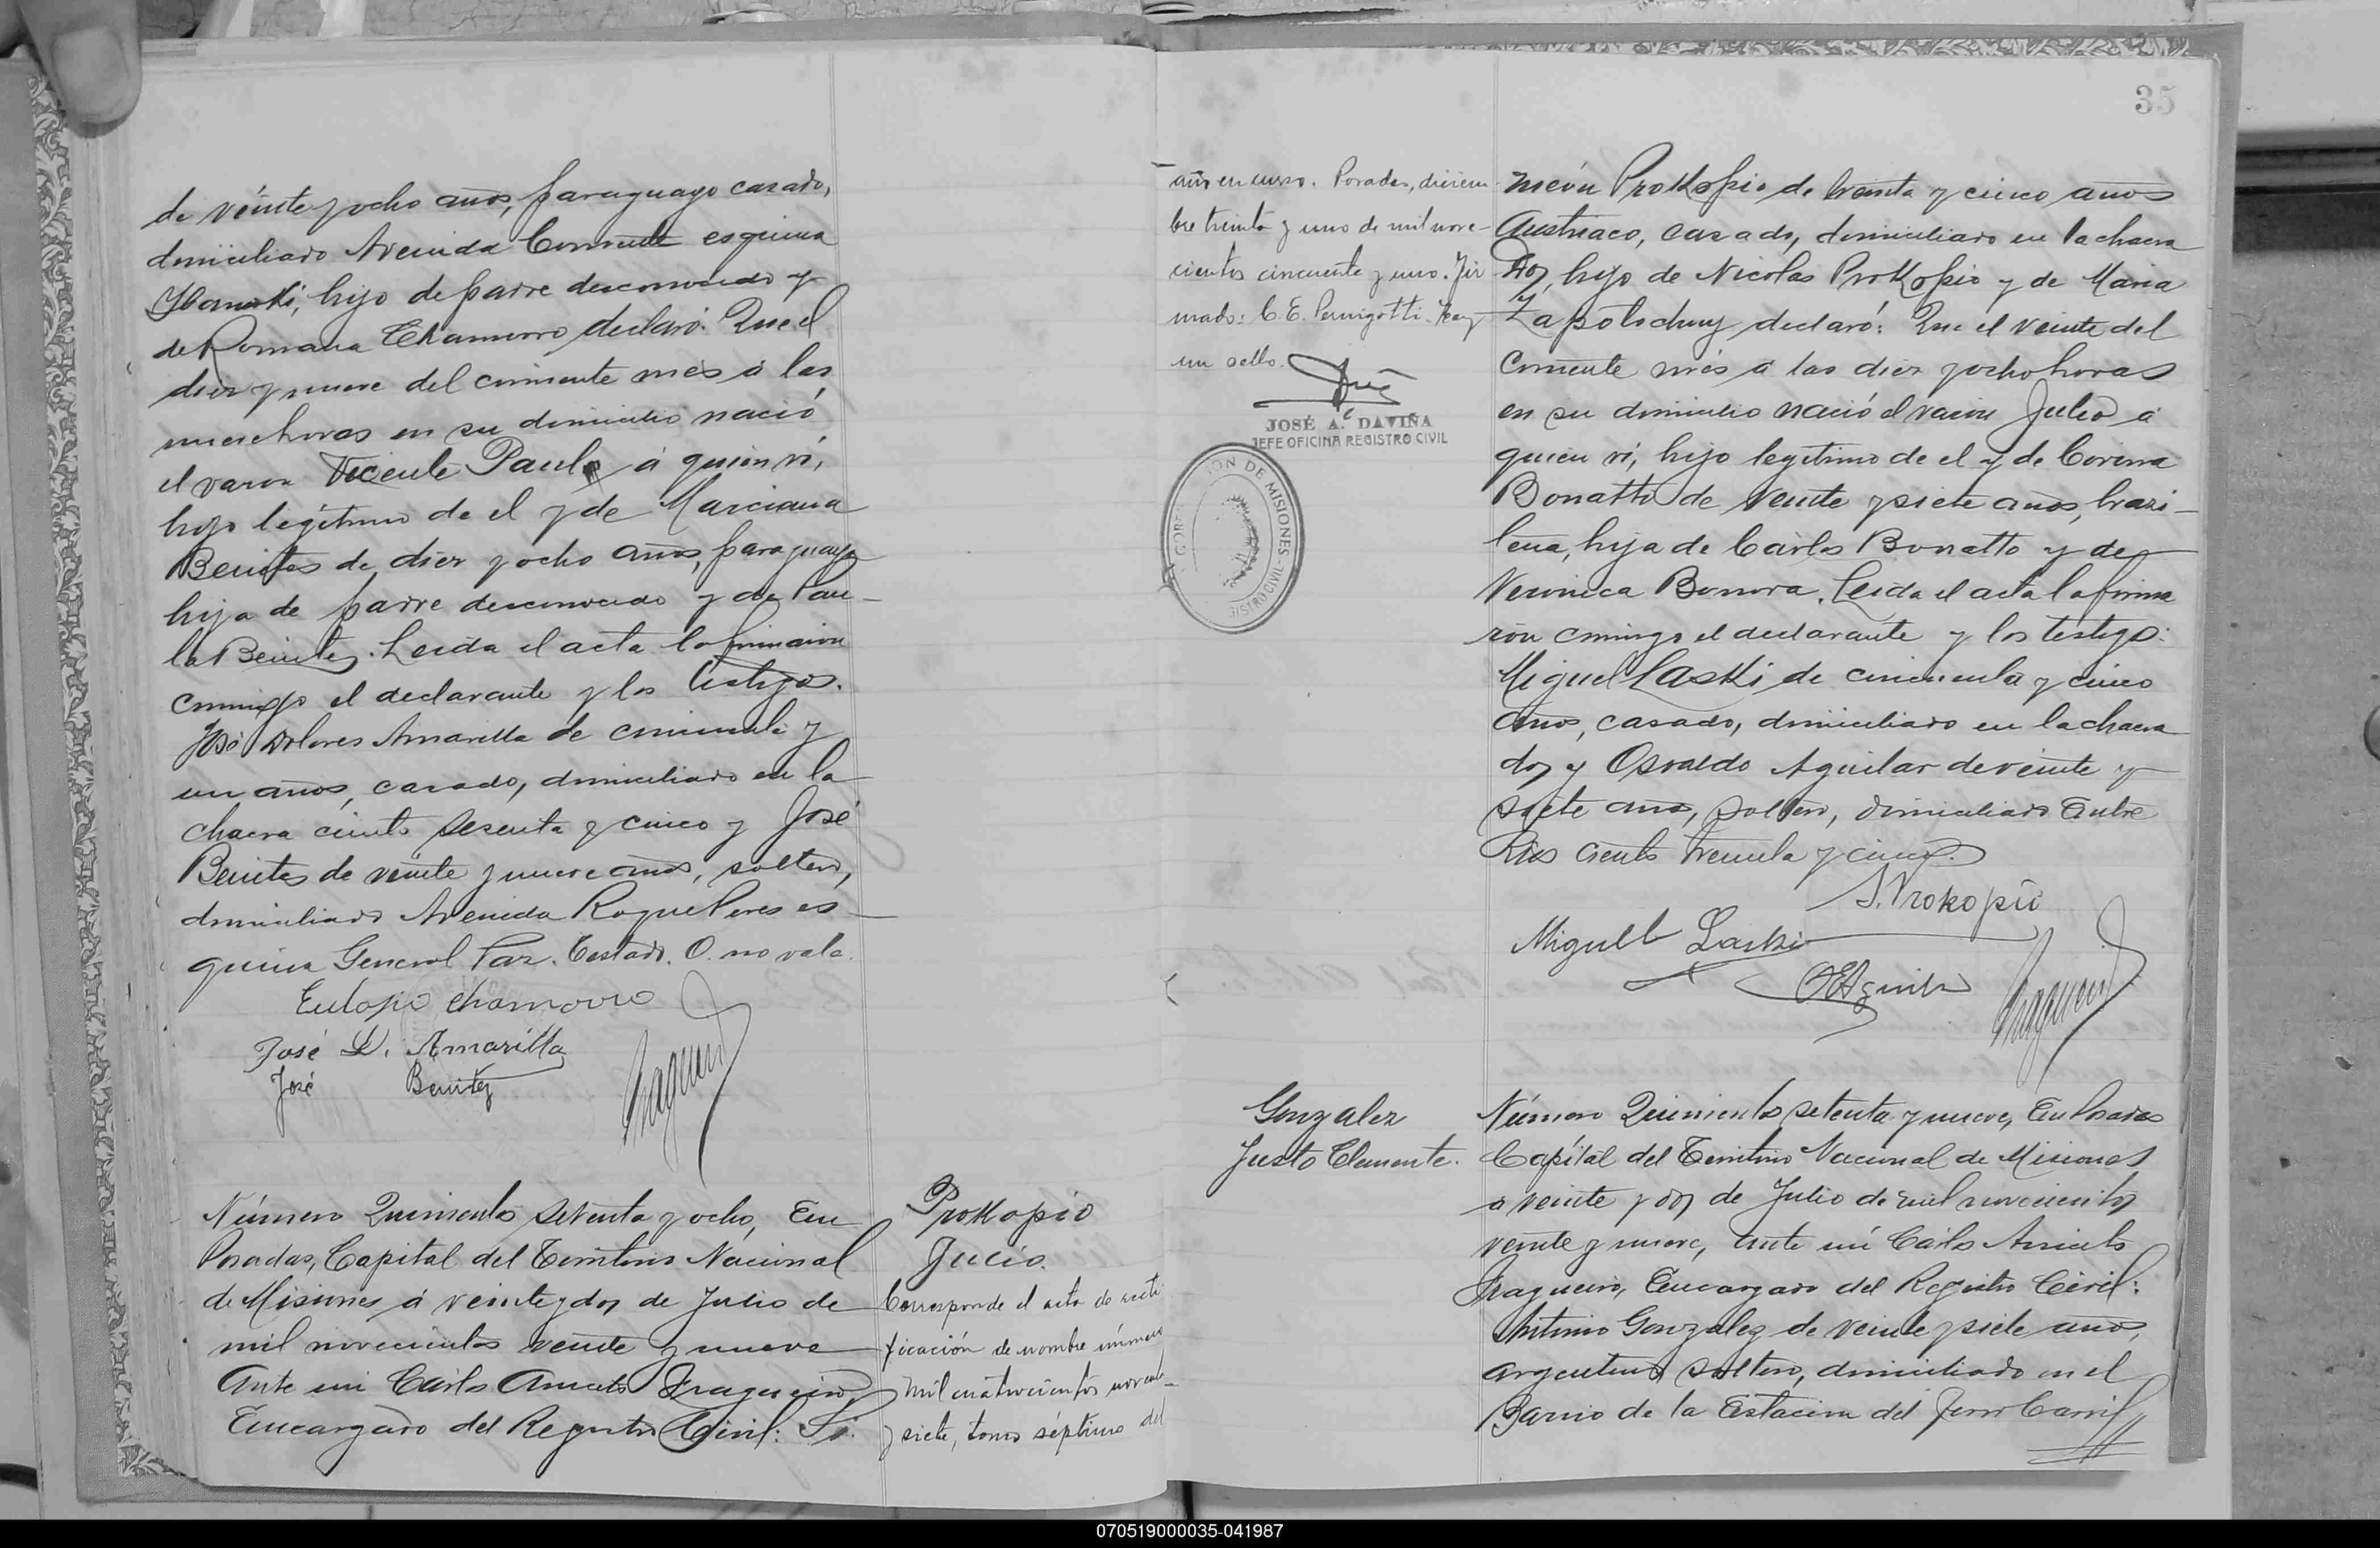 de veinte y ocho años, paraguayo casado,
domiciliado Avenida Corriente esquina
hijo de padre desconocido y
de Romana Chamorro declaró: Que el
diez y nueve del corriente mes á las
nueve horas en su domicilio nació
el varon Vicente Paulo á quien ví,
hijo legitimo de el y de Marciana
Benites de diez y ocho años, paraguaya
hija de padre desconocido y de Pau-
la Benitez. Leida el acta la firmaron
conmigo el declarante y los testigos.
José Dolores Amarilla de cincuenta y
un años, casado, domiciliado en la
chacra ciento sesenta y cinco y José
Benites de veinte y nueve años, soltero,
domiciliado Avenida Roque Peres es-
quina General Paz. Testado. O. no vale.
Eulogio Chamorro
José D. Amarilla
José Benitez
Fragueiro
Número Quinientos setenta y ocho, En
Posadas, Capital del Territorio Nacional
de Misiones á veinte y dos de Julio de
mil novecientos veinte y nueve
Ante mi Carlos Aniceto Fragueiro
Encargado del Registro Civil: Si-
Prokopio
Julio.
Corresponde el acta de recti
ficación de nombre número
mil cuatrocientos noventa
y siete, tomo séptimo del
35
año en curso. Posadas, diciem-
bre treinta y uno de mil nove-
cientos cincuenta y uno. Fir
mado: C. E. Pernigotti. Hay
un sello.
JOSÉ A. DAVIÑA
JEFE OFICINA REGISTRO CIVIL
meón Prokopio de treinta y cinco años
Austriaco, casado, domiciliado en la chacra
dos, hijo de Nicolas Prokopio y de Maria
Zapolochny declaró: Que el veinte del
corriente més á las diez y ocho horas
en su domicilio nació el varon Julio á
quien ví, hijo legitimo de el y de Corina
Bonatto de veinte y siete años, brazi-
lena, hija de Carlos Bonatto y de
Veronica Bonora. Leida el acta la firma
ron conmigo el declarante y los testigos:
Miguel Laski de cincuenta y cinco
años, casado, domiciliado en la chacra
dos y Osvaldo Aguilar de veinte y
siete años, soltero, domiciliado Entre
Rios ciento treinta y cinco.
S. Prokopio
Miguel Laski
OEAguilar
Fragueiro
Gonzalez
Justo Clemente.
Número Quinientos setenta y nueve, En Posadas
Capital del Territorio Nacional de Misiones
a veinte y dos de Julio de mil novecientos
veinte y nueve, ante mí Carlos Aniceto
Fragueiro, Encargado del Registro Civil:
Antonio Gonzalez de veinte y siete años,
argentino soltero, domiciliado en el
Barrio de la Estacion del Ferro Carril
070519000035-041987